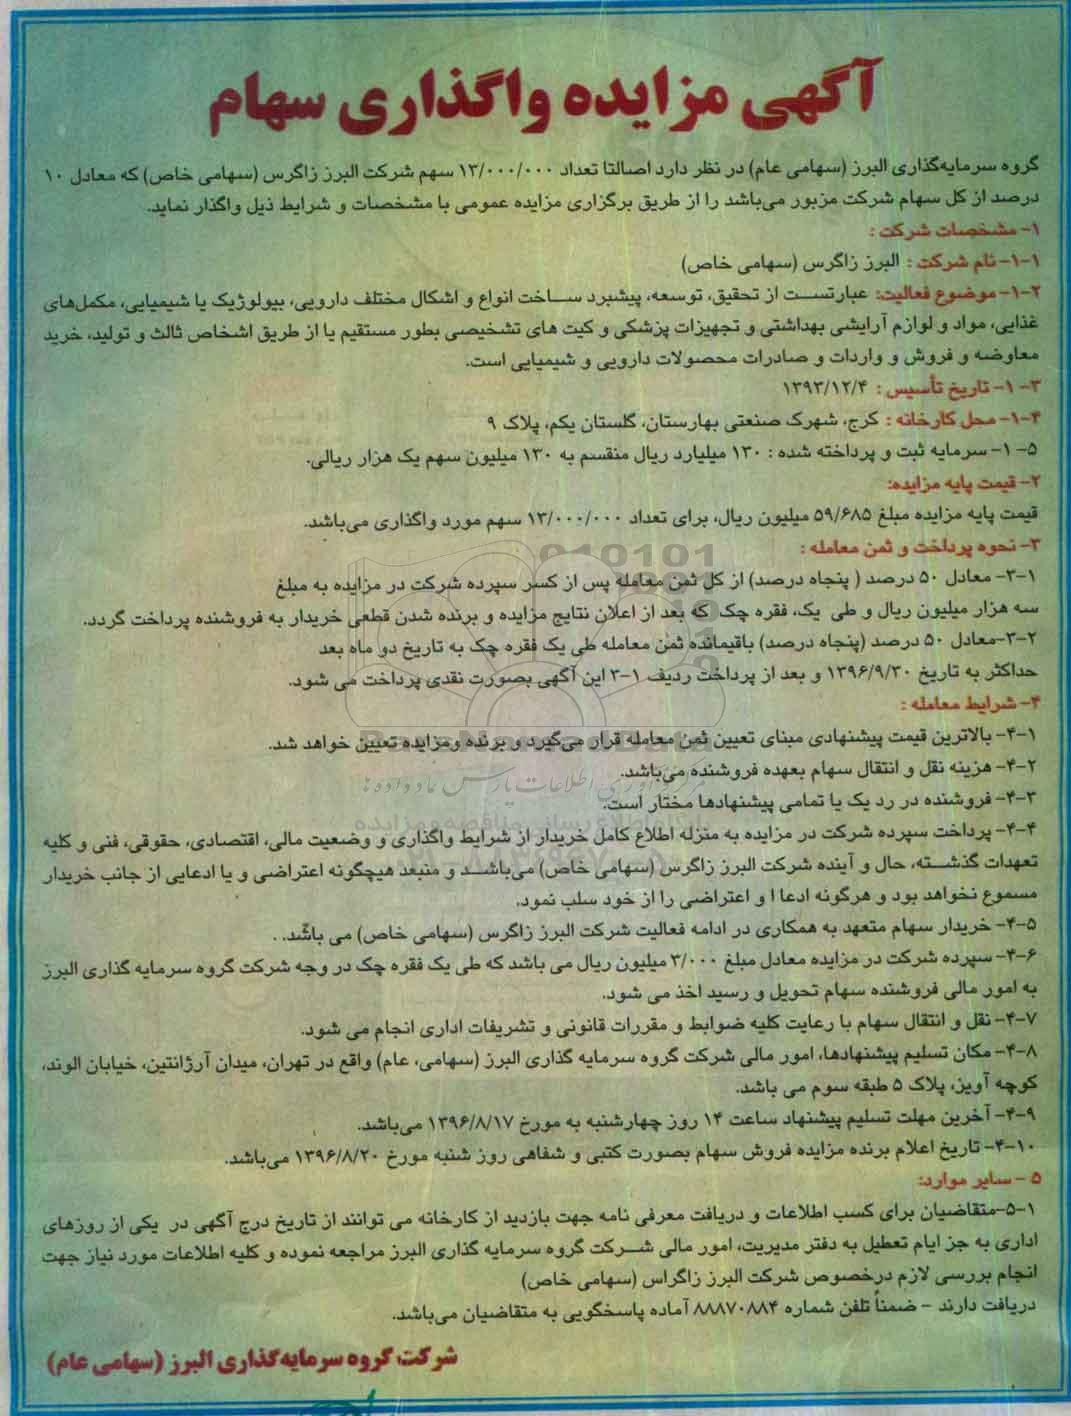 آگهی مزایده واگذاری سهام
گروه سرمایه‌گذاری البرز (سهامی عام) در نظر دارد اصالتا تعداد ۱۳/۰۰۰/۰۰۰ سهم شرکت البرز زاگرس (سهامی خاص) که معادل ۱۰
درصد از کل سهام شرکت مزبور می‌باشد را از طریق برگزاری مزایده عمومی با مشخصات و شرایط ذیل واگذار نماید.
۱- مشخصات شرکت :
۱-۱- نام شرکت : البرز زاگرس (سهامی خاص)
۱-۲- موضوع فعالیت: عبارتست از تحقیق، توسعه، پیشبرد ساخت انواع و اشکال مختلف دارویی، بیولوژیک یا شیمیایی، مکمل‌های
غذایی، مواد و لوازم آرایشی بهداشتی و تجهیزات پزشکی و کیت های تشخیصی بطور مستقیم یا از طریق اشخاص ثالث و تولید، خرید
معاوضه و فروش و واردات و صادرات محصولات دارویی و شیمیایی است.
۱-۳- تاریخ تأسیس : ۱۳۹۳/۱۲/۴
۱-۴- محل کارخانه : کرج، شهرک صنعتی بهارستان، گلستان یکم، پلاک ۹
۱-۵- سرمایه ثبت و پرداخته شده : ۱۳۰ میلیارد ریال منقسم به ۱۳۰ میلیون سهم یک هزار ریالی.
۲- قیمت پایه مزایده:
قیمت پایه مزایده مبلغ ۵۹/۶۸۵ میلیون ریال، برای تعداد ۱۳/۰۰۰/۰۰۰ سهم مورد واگذاری می‌باشد.
۳- نحوه پرداخت و ثمن معامله :
۳-۱- معادل ۵۰ درصد ( پنجاه درصد) از کل ثمن معامله پس از کسر سپرده شرکت در مزایده به مبلغ
سه هزار میلیون ریال و طی یک، فقره چک که بعد از اعلان نتایج مزایده و برنده شدن قطعی خریدار به فروشنده پرداخت گردد.
۳-۲-معادل ۵۰ درصد (پنجاه درصد) باقیمانده ثمن معامله طی یک فقره چک به تاریخ دو ماه بعد
حداکثر به تاریخ ۱۳۹۶/۹/۳۰ و بعد از پرداخت ردیف ۳-۱ این آگهی بصورت نقدی پرداخت می شود.
۴- شرایط معامله :
۴-۱- بالاترین قیمت پیشنهادی مبنای تعیین ثمن معامله قرار می‌گیرد و برنده ومزایده تعیین خواهد شد.
۴-۲- هزینه نقل و انتقال سهام بعهده فروشنده می‌باشد.
۴-۳- فروشنده در رد یک یا تمامی پیشنهادها مختار است.
۴-۴- پرداخت سپرده شرکت در مزایده به منزله اطلاع کامل خریدار از شرایط واگذاری و وضعیت مالی، اقتصادی، حقوقی، فنی و کلیه
تعهدات گذشته، حال و آینده شرکت البرز زاگرس (سهامی خاص) می‌باشد و منبعد هیچگونه اعتراضی و یا ادعایی از جانب خریدار
مسموع نخواهد بود و هرگونه ادعا ا و اعتراضی را از خود سلب نمود.
۴-۵- خریدار سهام متعهد به همکاری در ادامه فعالیت شرکت البرز زاگرس (سهامی خاص) می باشد. .
۴-۶- سپرده شرکت در مزایده معادل مبلغ ۳/۰۰۰ میلیون ریال می باشد که طی یک فقره چک در وجه شرکت گروه سرمایه گذاری البرز
به امور مالی فروشنده سهام تحویل و رسید اخذ می شود.
۴-۷- نقل و انتقال سهام با رعایت کلیه ضوابط و مقررات قانونی و تشریفات اداری انجام می شود.
۴-۸- مکان تسلیم پیشنهادها، امور مالی شرکت گروه سرمایه گذاری البرز (سهامی، عام) واقع در تهران، میدان آرژانتین، خیابان الوند،
کوچه آویز، پلاک ۵ طبقه سوم می باشد.
۴-۹- آخرین مهلت تسلیم پیشنهاد ساعت ۱۴ روز چهارشنبه به مورخ ۱۳۹۶/۸/۱۷ می‌باشد.
۴-۱۰- تاریخ اعلام برنده مزایده فروش سهام بصورت کتبی و شفاهی روز شنبه مورخ ۱۳۹۶/۸/۲۰ می‌باشد.
۵ - سایر موارد:
۵-۱-متقاضیان برای کسب اطلاعات و دریافت معرفی نامه جهت بازدید از کارخانه می توانند از تاریخ درج آگهی در یکی از روزهای
اداری به جز ایام تعطیل به دفتر مدیریت، امور مالی شرکت گروه سرمایه گذاری البرز مراجعه نموده و کلیه اطلاعات مورد نیاز جهت
انجام بررسی لازم درخصوص شرکت البرز زاگراس (سهامی خاص)
دریافت دارند - ضمناً تلفن شماره ۸۸۸۷۰۸۸۴ آماده پاسخگویی به متقاضیان می‌باشد.
شرکت گروه سرمایه‌گذاری البرز (سهامی عام)